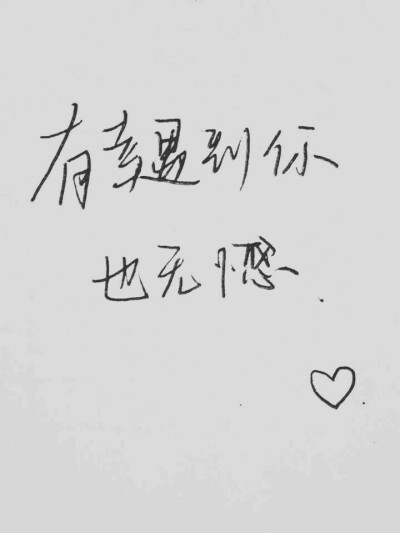 有幸遇到你
也无憾.